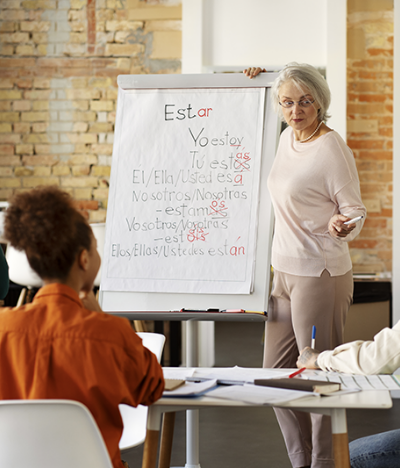 Estar
Yo estoy
Tú estás
El/Ella/Usted está
Nosotros/Nosotras
- estamos
Vosotros/Vosotras
- estáis
Ellos/Ellas/Ustedes están